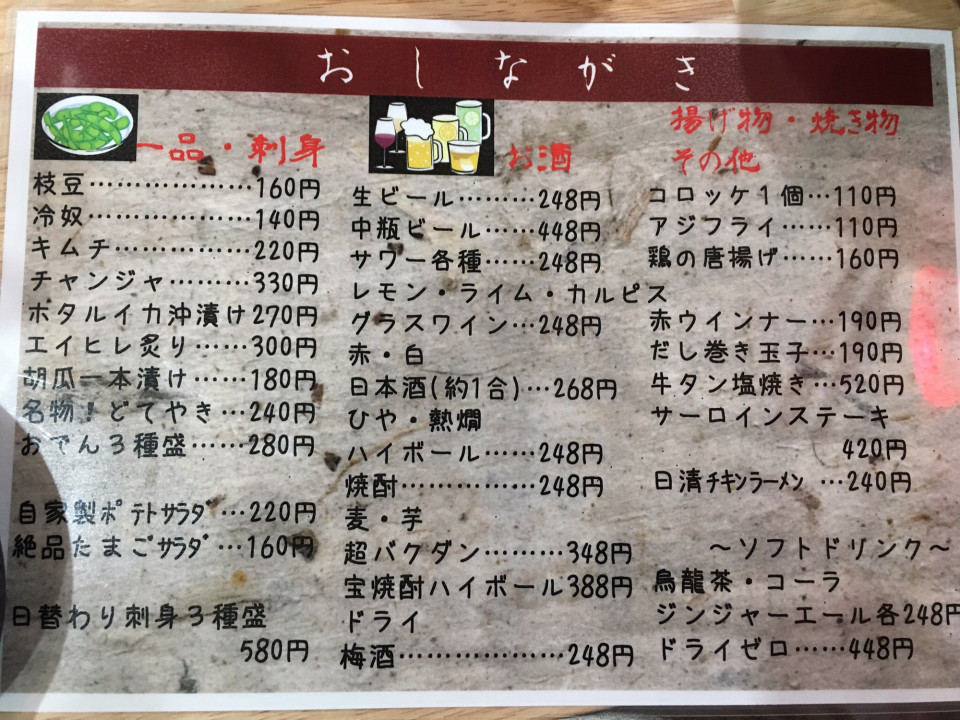 おしながき
一品・刺身
枝豆………………160円
冷奴………………140円
キムチ……………220円
チャンジャ………330円
ホタルイカ沖漬け270円
エイヒレ炙り……300円
胡瓜一本漬け……180円
名物！どてやき…240円
おでん３種盛……280円
自家製ﾎﾟﾃﾄｻﾗﾀﾞ…220円
絶品たまごｻﾗﾀﾞ…160円
日替わり刺身３種盛
580円
お酒
生ビール………248円
中瓶ビール……448円
サワー各種……248円
レモン・ライム・カルピス
グラスワイン…248円
赤・白
日本酒(約1合)…268円
ひや・熱燗
ハイボール……248円
焼酎……………248円
麦・芋
超バクダン………348円
宝焼酎ハイボール388円
ドライ
梅酒………………248円
揚げ物・焼き物
その他
コロッケ１個…110円
アジフライ……110円
鶏の唐揚げ……160円
赤ウインナー…190円
だし巻き玉子…190円
牛タン塩焼き…520円
サーロインステーキ
420円
日清ﾁｷﾝﾗｰﾒﾝ …240円
～ソフトドリンク～
烏龍茶・コーラ
ジンジャーエール各248円
ドライゼロ……448円